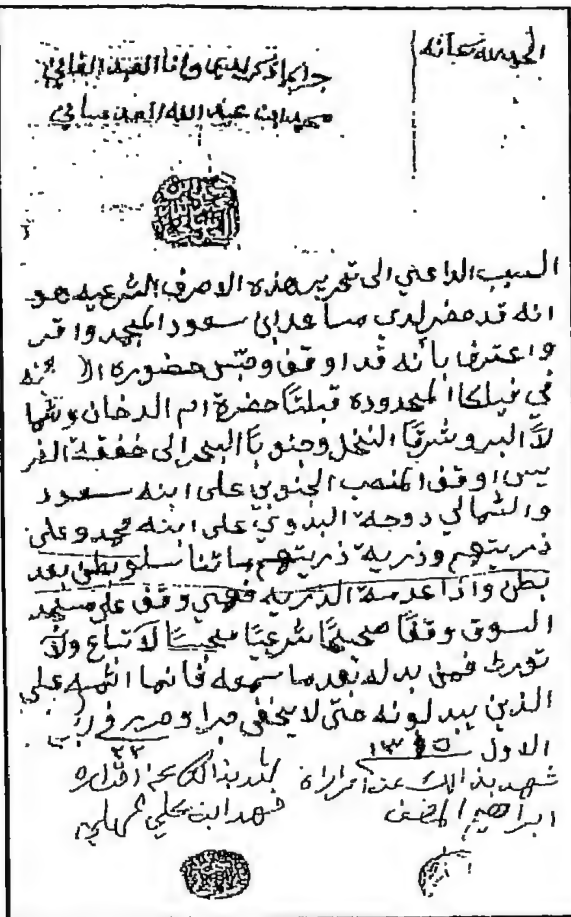 الحمد لله سبحانه
جرا ما ذكر لديما وانا العبد الفاني
محمد ابن عبد الله العدساني
السبب الداعي الى تحرير هذه الاحرف الشرعيه هو
انه قد حضر لدي مساعد ابن سعود المجد واقر
واعترف بأنه قد اوقف وحبس حضوره
في فيلكا المحدوده قبلتًا حضرة ام الدخان وشما
لاً البر وشرقًا النخل وجنوبًا البحر الى
اوقف المنصب الجنوبي على ابنه سعود
والشمالي دوحة البدوي على ابنه محمد وعلى
ذريتهم وذرية ذريتهم ما تناسلو بطن بعد
بطن واذا عدمة الذريه فهي وقف على مسجد
السوق وقفًا صحيحًا شرعيًا لا تباع ولا
تورث فمن بدله بعد ما سمعه فانما اثمه على
الذين يبدلونه حتى لا يخفى جرا وحرر في ربيع
الاول
شهد بذالك عن اقراره
ابراهيم المضف
شهد بذالك عن اقراره
فهد ابن علي